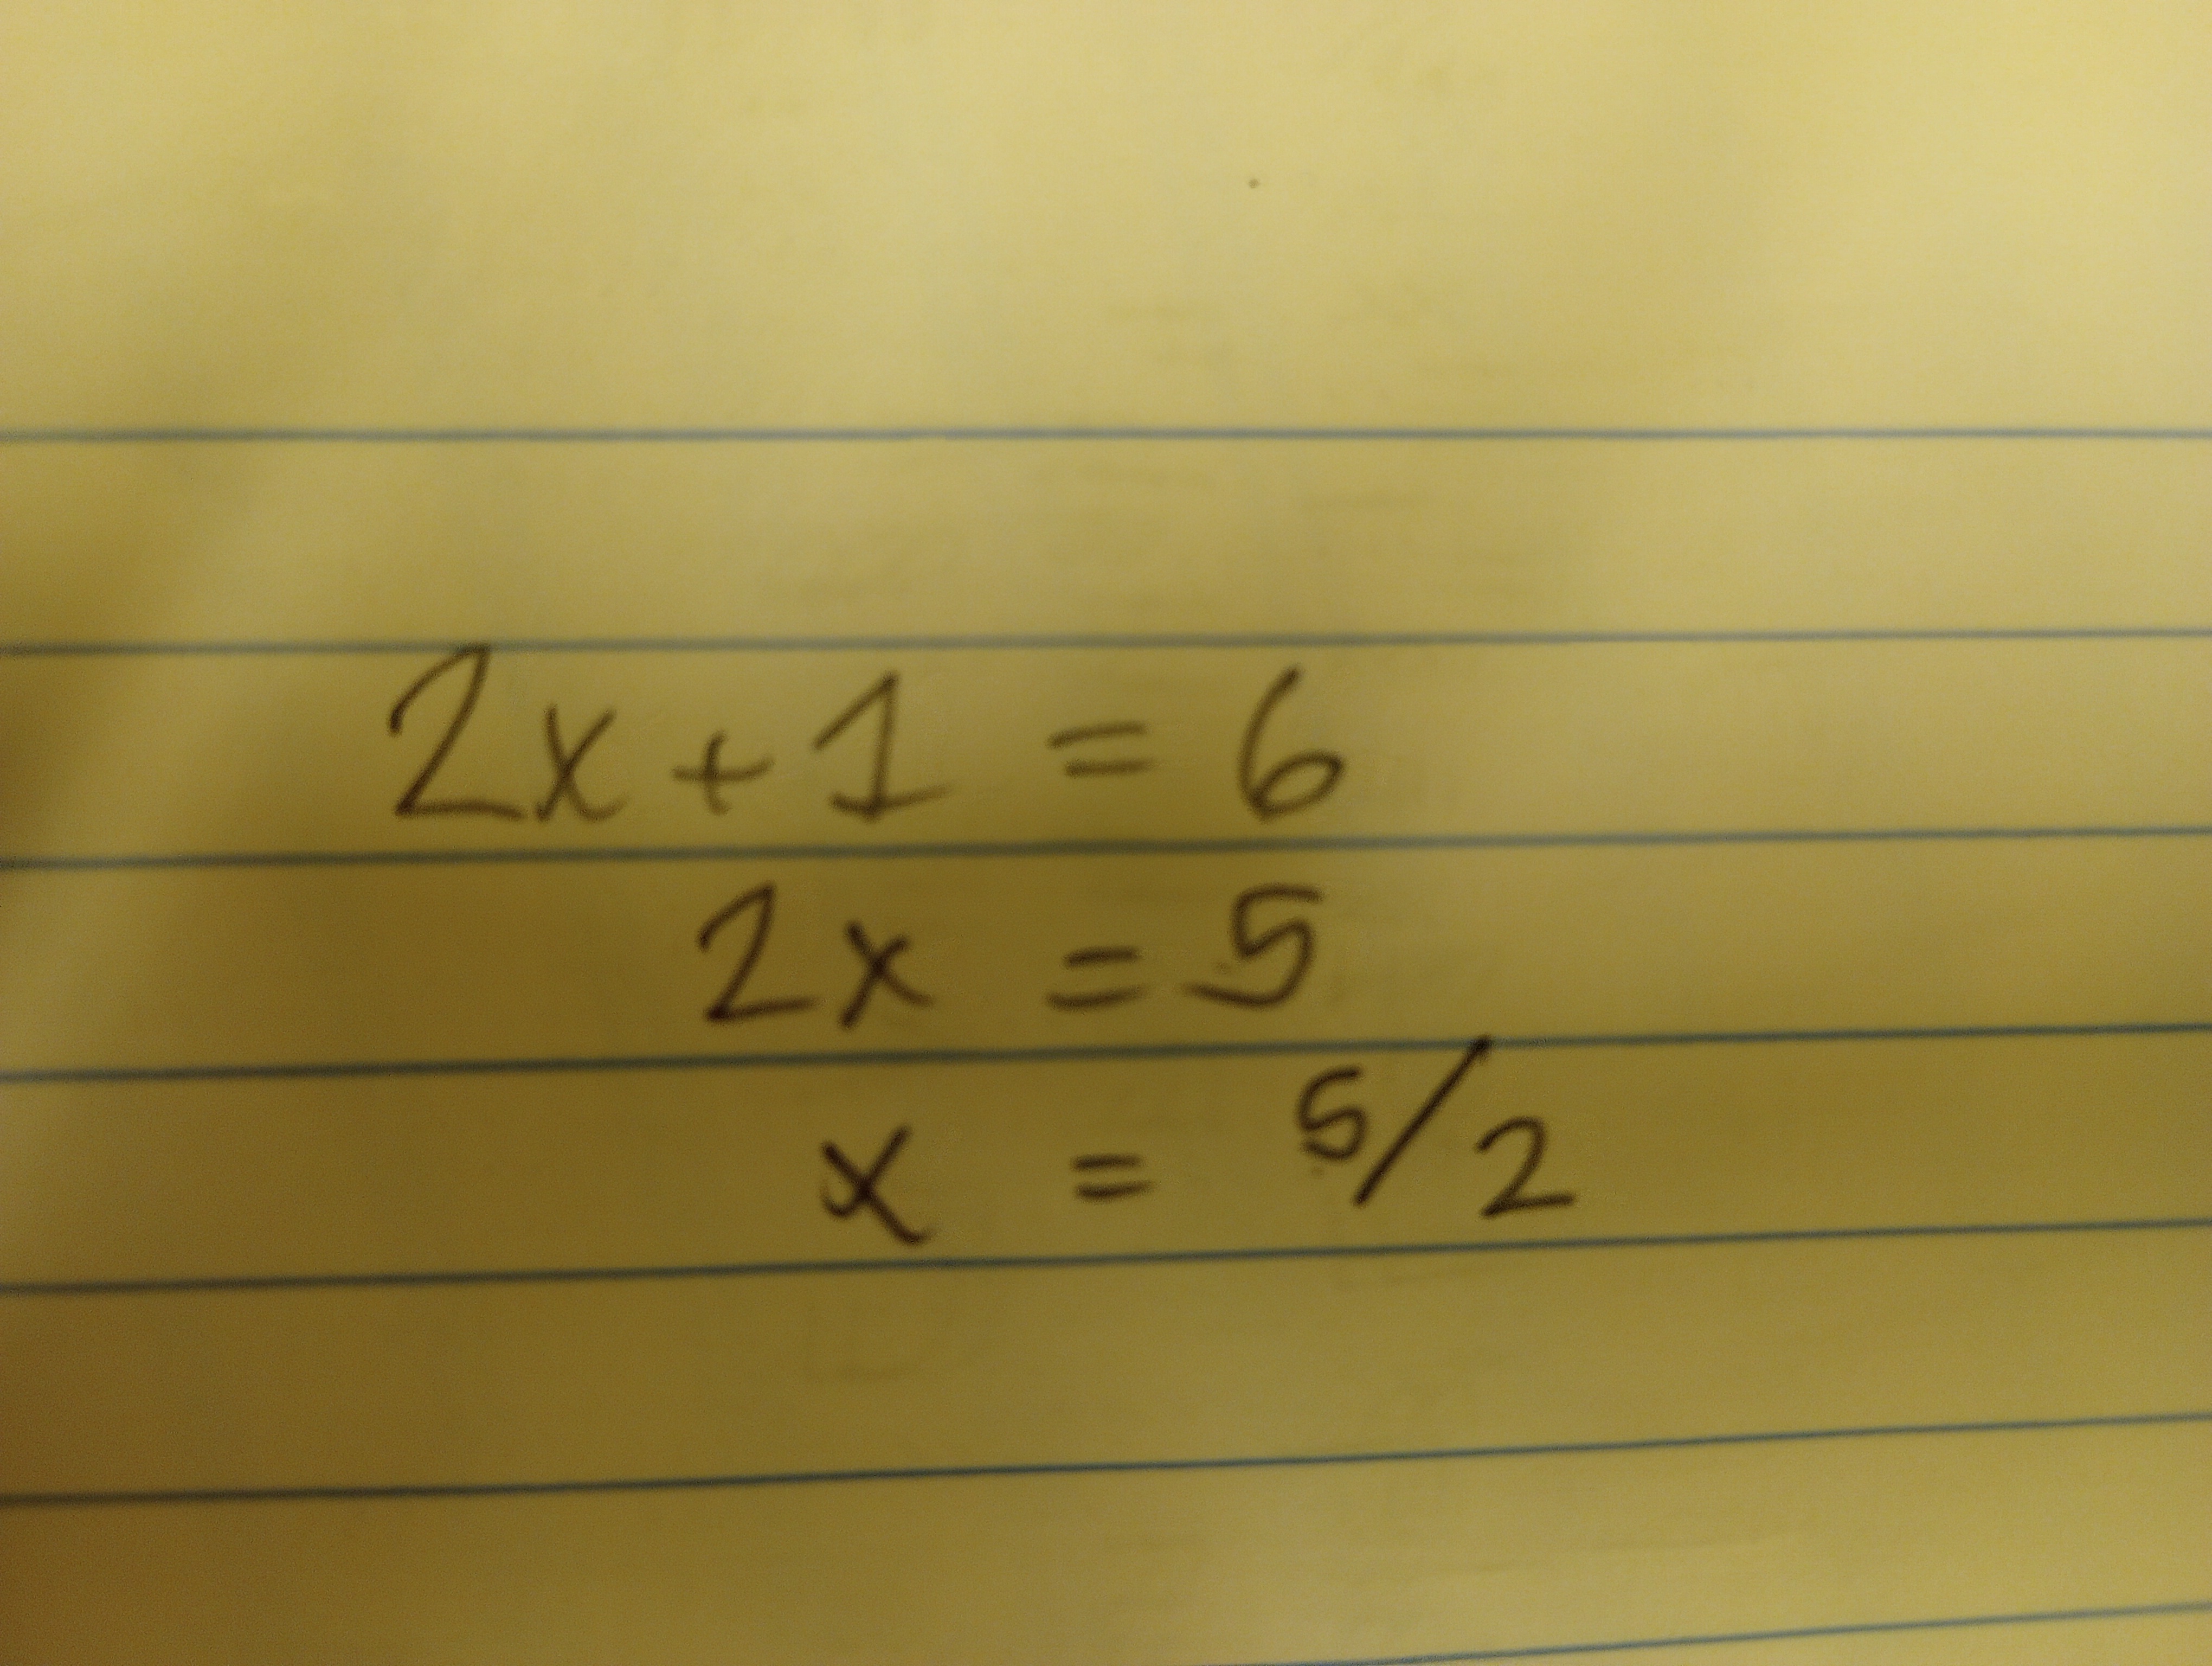 2x + 1 = 6
2x = 5
x = 5/2